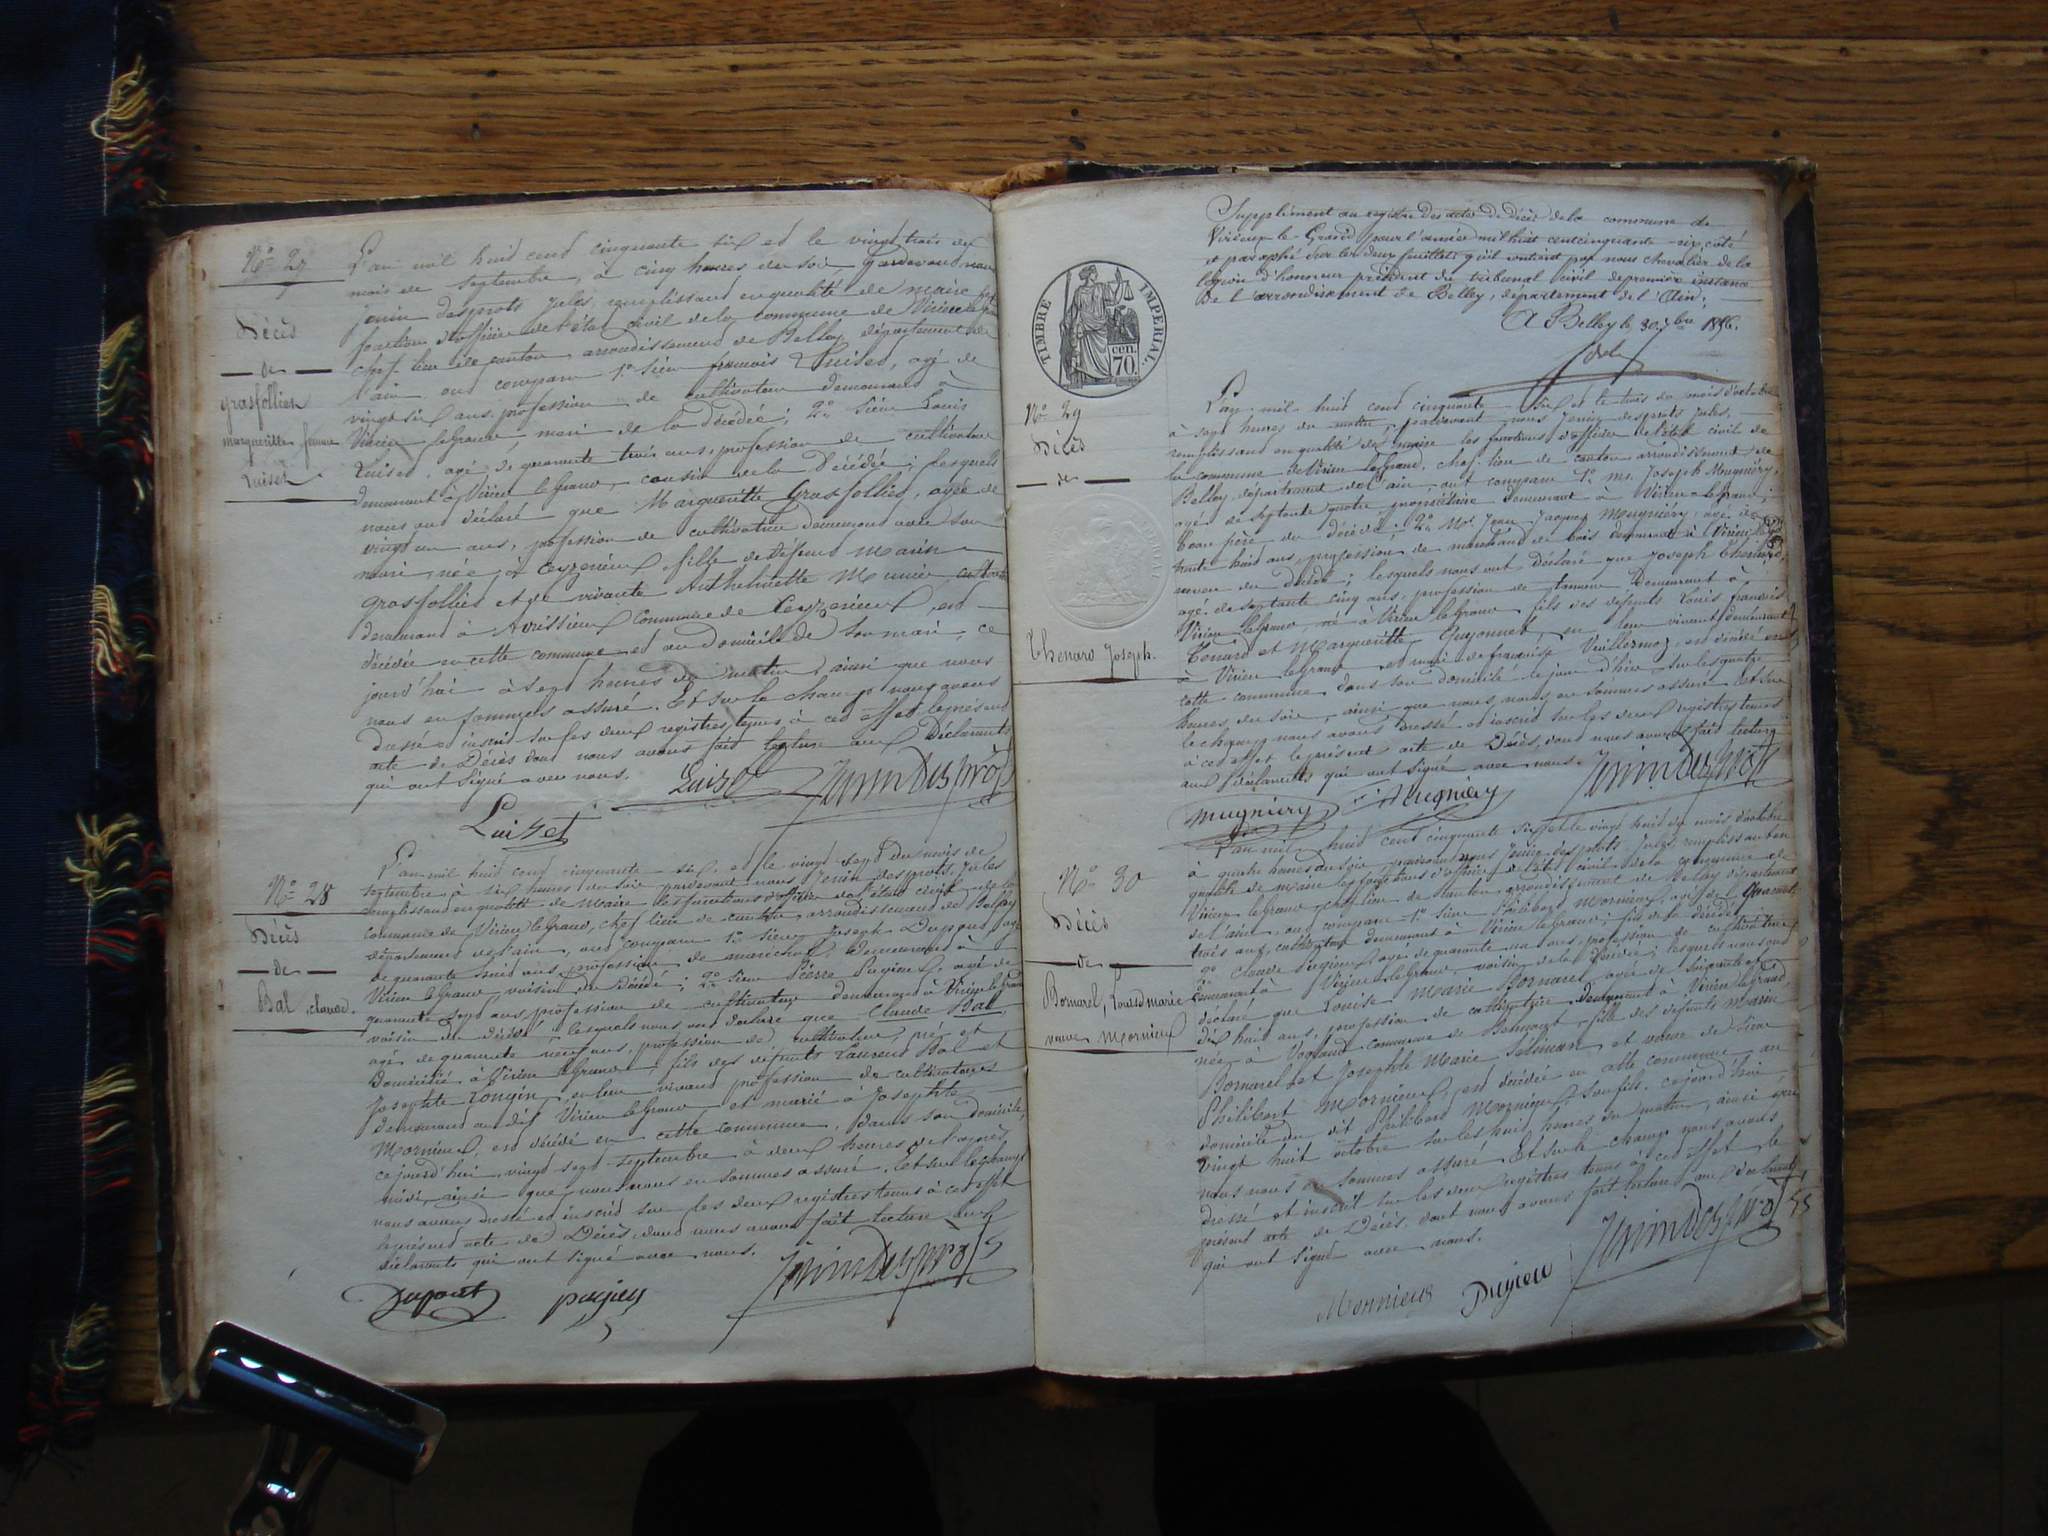 N° 27
Décès
de
grasfollier
margueritte femme
Luiset
L'an mil huid cend cinquante six ed le vingt trois du
mois de septembre, à cinq heures du soir, pardevand nous
jenin desprots jules, remplissand en qualité de maire les
fonctions d'officier de l'état civil de la commune de Virieu le grand
chef-lieu de canton, arrondissement de Belley, département de
l'ain, ond comparu 1° sieur françois Luised, agé de
vingt six ans, profession de cultivateur demeurand à
Virieu le Grand, mari de la décédée; 2° sieur Louis
Luised, agé de quarante trois ans, profession de cultivateur
demeurant à Virieu le Grand, cousin de la Décédée; lesquels
nous ond déclaré que Margueritte Grasfollier, agée de
vingt un ans, profession de cultivatrice demeurand avec son
mari, née à Ceyzerieux, fille de défund Marin
grasfollier et de vivante Anthelmette Munier
demeurand à Avrissieux Commune de Ceyzerieux, est
décédée en cette commune et au domicile de son mari, ce
jourd'hui à sept heures du matin, ainsi que nous
nous en sommes assuré. Et sur le champ nous avons
dressé et inscrit sur les deux registres tenus à ced effet le présend
acte de Décès dond nous avons fait lecture aux Déclarants
qui ont signé avec nous.
Luiset JeninDesprots
Luizet
N° 28
Décès
de
Bal, claude.
L'an mil huid cend cinquante six, et le vingt sept du mois de
septembre à six heures du soir pardevant nous Jenin desprots, Jules
remplissand en qualité de Maire les fonctions d'officier de l'état civil de la
commune de Virieu le Grand, chef lieu de canton, arrondissement de Belley
département de l'ain, ond comparu 1° sieur Joseph Dupont, agé
de quarante huid ans, profession de maréchal, demeurand à
Virieu le Grand voisin du Décédé; 2° sieur Pierre Pugieux, agé de
quarante sept ans profession de cultivateur demeurand à Virieu le Grand
voisin du décédé, lesquels nous ond déclaré que Claude Bal,
agé de quarante neuf ans, profession de cultivateur, né et
Domicilié à Virieu le Grand, fils des défunts Laurend Bal et
Josephte Longin, en leur vivand profession de cultivateurs
demeurand au dit Virieu le Grand et marié à Josephte
Mornieux, est décédé en cette commune, Dans son domicile,
ce jourd'hui, vingt sept septembre à deux heures de l'après
midi, ainsi que nous nous en sommes assuré. Et sur le champ
nous avons dressé et inscrid sur les deux registres tenus à ced effet
le présend acte de Décès dond nous avons fait lecture aux
déclarants qui ont signé avec nous.
Dupont pugieux JeninDesprots
Supplément au registre des actes de décès de la commune de
Virieux-le-Grand pour l'année mil huit cent cinquante-six, côté
et paraphé sur les deux feuillets qu'il contient par nous chevalier de la
légion d'honneur président du tribunal civil de première instance
de l'arrondissement de Belley, département de l'Ain;
A Belley le 30 7bre 1856.
TIMBRE IMPERIAL
70 cen.
N° 29
Décès
de
Thenard Joseph.
L'an mil huid cend cinquante six et le trois du mois d'octobre
à sept heures du matin, pardevant nous Jenin desprots jules,
remplissand en qualité de maire les fonctions d'officier de l'état civil de
la commune de Virieu le Grand, chef lieu de canton arrondissement de
Belley, département de l'ain, ont comparu 1° mr. Joseph Mugniéry,
agé de septante quatre propriétaire demeurant à Virieu le Grand,
beau père du décédé; 2° Mr. Jean Jacques Meugniéry, agé de
trente huid ans, profession de marchand de bois demeurant à Virieu
neveu du décédé; lesquels nous ont déclaré que Joseph Thenard,
agé de septante cinq ans, profession de demeurant à
Virieu le Grand, né à Virieu le Grand fils des défunts Louis françois
Tenard et Margueritte Guyonnet, en leur vivant demeurant
à Virieu le Grand et mari de françoise Vuillermoz, est décédé en
cette commune dans son domicile le jour d'hier sur les quatre
heures du soir, ainsi que nous nous en sommes assuré. Et sur
le champ nous avons dressé et inscrid sur les deux registres tenus
à ced effet le présent acte de Décès, dont nous avons fait lecture
aux Déclarants qui ont signé avec nous.
Mugniery Meugniéry JeninDesprots
N° 30
Décès
de
Bornarel, Louise marie
veuve Mornieux
L'an mil huid cent cinquante six et le vingt huid du mois d'octobre
à quatre heures du soir pardevant nous Jenin desprots jules remplissant en
qualité de maire les fonctions d'officier de l'état civil de la commune de
Virieu le Grand, chef lieu de canton, arrondissement de Belley département
de l'ain, ond comparu 1° sieur Philibert Mornieux, agé de quarante
trois ans, cultivateur demeurant à Virieu le Grand, fils de la décédée
2° Claude Pugieux, agé de quarante un ans, profession de cultivateur
demeurant à Virieu le Grand, voisin de la Décédée; lesquels nous ont
déclaré que Louise Marie Bornarel, agée de soixante et
dix huit ans, profession de cultivatrice demeurant à Virieu le Grand
née à Vogland commune de Belmont, fille des défunts Marin
Bornarel et Josephte Marie et veuve de sieur
Philibert Mornieux, est décédée en cette commune au
domicile du dit Philibert Mornieux son fils, ce jourd'hui
vingt huit octobre sur les huit heures du matin, ainsi que
nous nous en sommes assuré. Et sur le champ nous avons
dressé et inscrit sur les deux registres tenus à ced effet le
présent acte de Décès dont nous avons fait lecture aux déclarants
qui ont signé avec nous.
Mornieux Pugieux JeninDesprots